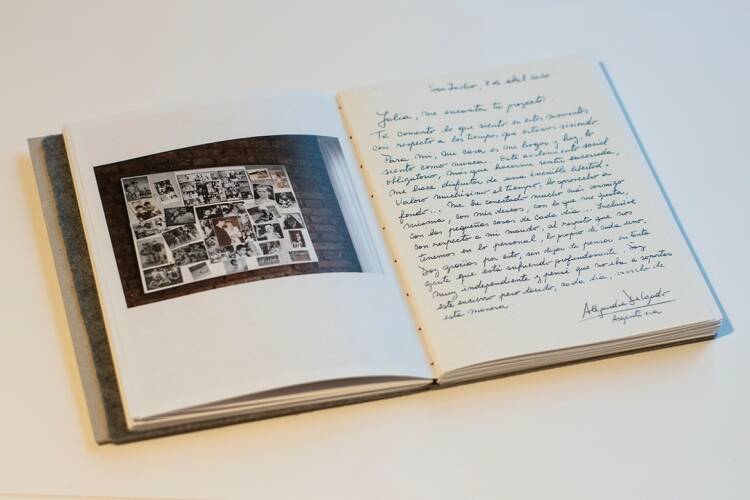 San Isidro, 8 de abril 2020
Julia, me encanta tu proyecto.
Te comento lo que siento en estos momentos
con respecto a los tiempos que estamos viviendo
Para mi, mi casa es mi hogar y hoy, lo
siento como nunca. Este aislamiento social
obligatorio, mas que hacerme sentir encerrada,
me hace disfrutar de una increible libertad.
Valoro muchísimo el tiempo, lo aprovecho a
fondo... Me he conectado mucho más conmigo
misma, con mis deseos, con lo que me gusta,
con las pequeñas cosas de cada día... Inclusive
con respecto a mi marido, al respeto que nos
tenemos en lo personal, lo propio de cada uno.
Doy gracias por esto, sin dejar de pensar en tanta
gente que está sufriendo profundamente. Soy
muy independiente y pensé que no iba a soportar
este encierro pero decido, cada día, vivirlo de
esta manera
Alejandra Delgado
Argentina